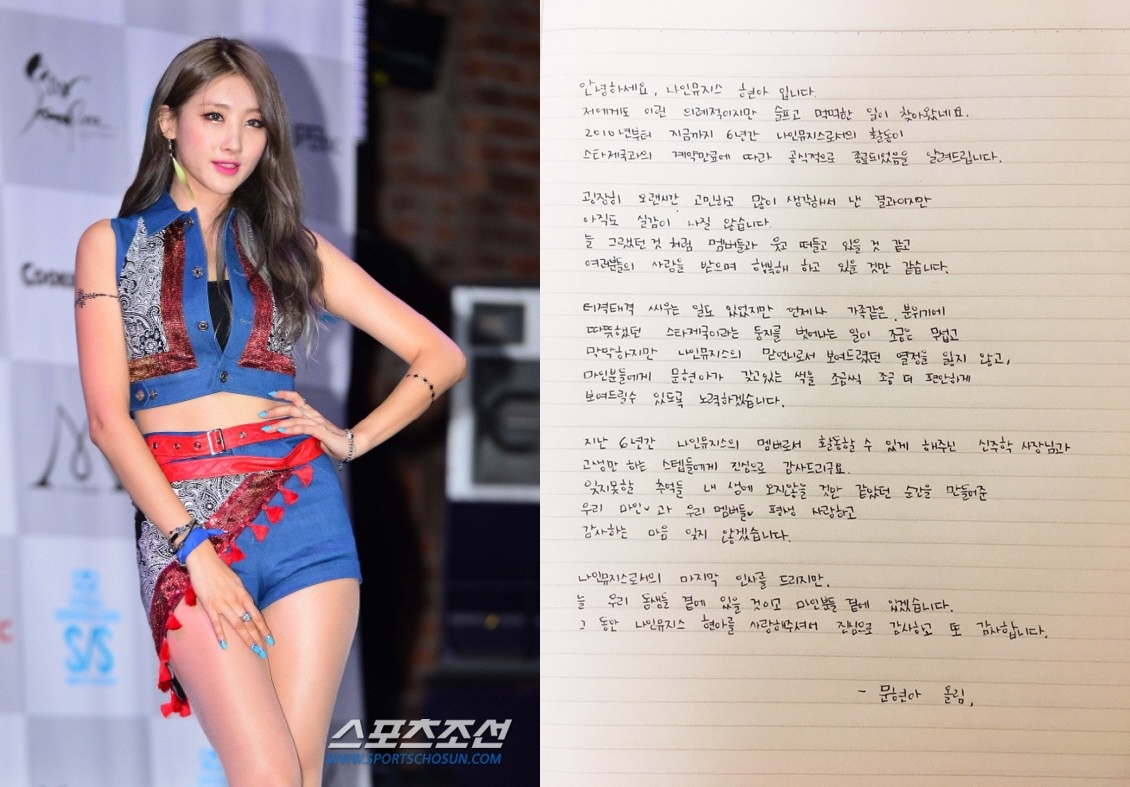 안녕하세요, 나인뮤지스 현아 입니다.
저에게도 이런 의례적이지만 슬프고 먹먹한 일이 찾아왔네요.
2010년부터 지금까지 6년간 나인뮤지스로서의 활동이
스타제국과의 계약만료에 따라 공식적으로 종료되었음을 알려드립니다.
굉장히 오랜시간 고민하고 많이 생각해서 낸 결과이지만
아직도 실감이 나질 않습니다.
늘 그랬던 것 처럼 멤버들과 웃고 떠들고 있을 것 같고
여러분들의 사랑을 받으며 행복해 하고 있을 것만 같습니다.
티격태격 싸우는 일도 있었지만 언제나 가족같은 분위기에
따뜻했던 스타제국이라는 둥지를 벗어나는 일이 조금은 무섭고
막막하지만 나인뮤지스의 맏언니로서 보여드렸던 열정을 잃지 않고,
마인분들에게 문현아가 갖고있는 색을 조금씩 조금 더 편안하게
보여드릴수 있도록 노력하겠습니다.
지난 6년간 나인뮤지스의 멤버로서 활동할 수 있게 해주신 신주학 사장님과
고생만 하는 스텝들에게 진심으로 감사드리구요.
잊지못할 추억들 내 생에 오지않을 것만 같았던 순간을 만들어준
우리 마인♥과 우리 멤버들♥ 평생 사랑하고
감사하는 마음 잊지 않겠습니다.
나인뮤지스로서의 마지막 인사를 드리지만,
늘 우리 동생들 곁에 있을 것이고 마인분들 곁에 있겠습니다.
그 동안 나인뮤지스 현아를 사랑해주셔서 진심으로 감사하고 또 감사합니다.
- 문현아 올림.
스포츠조선
WWW.SPORTSCHOSUN.COM